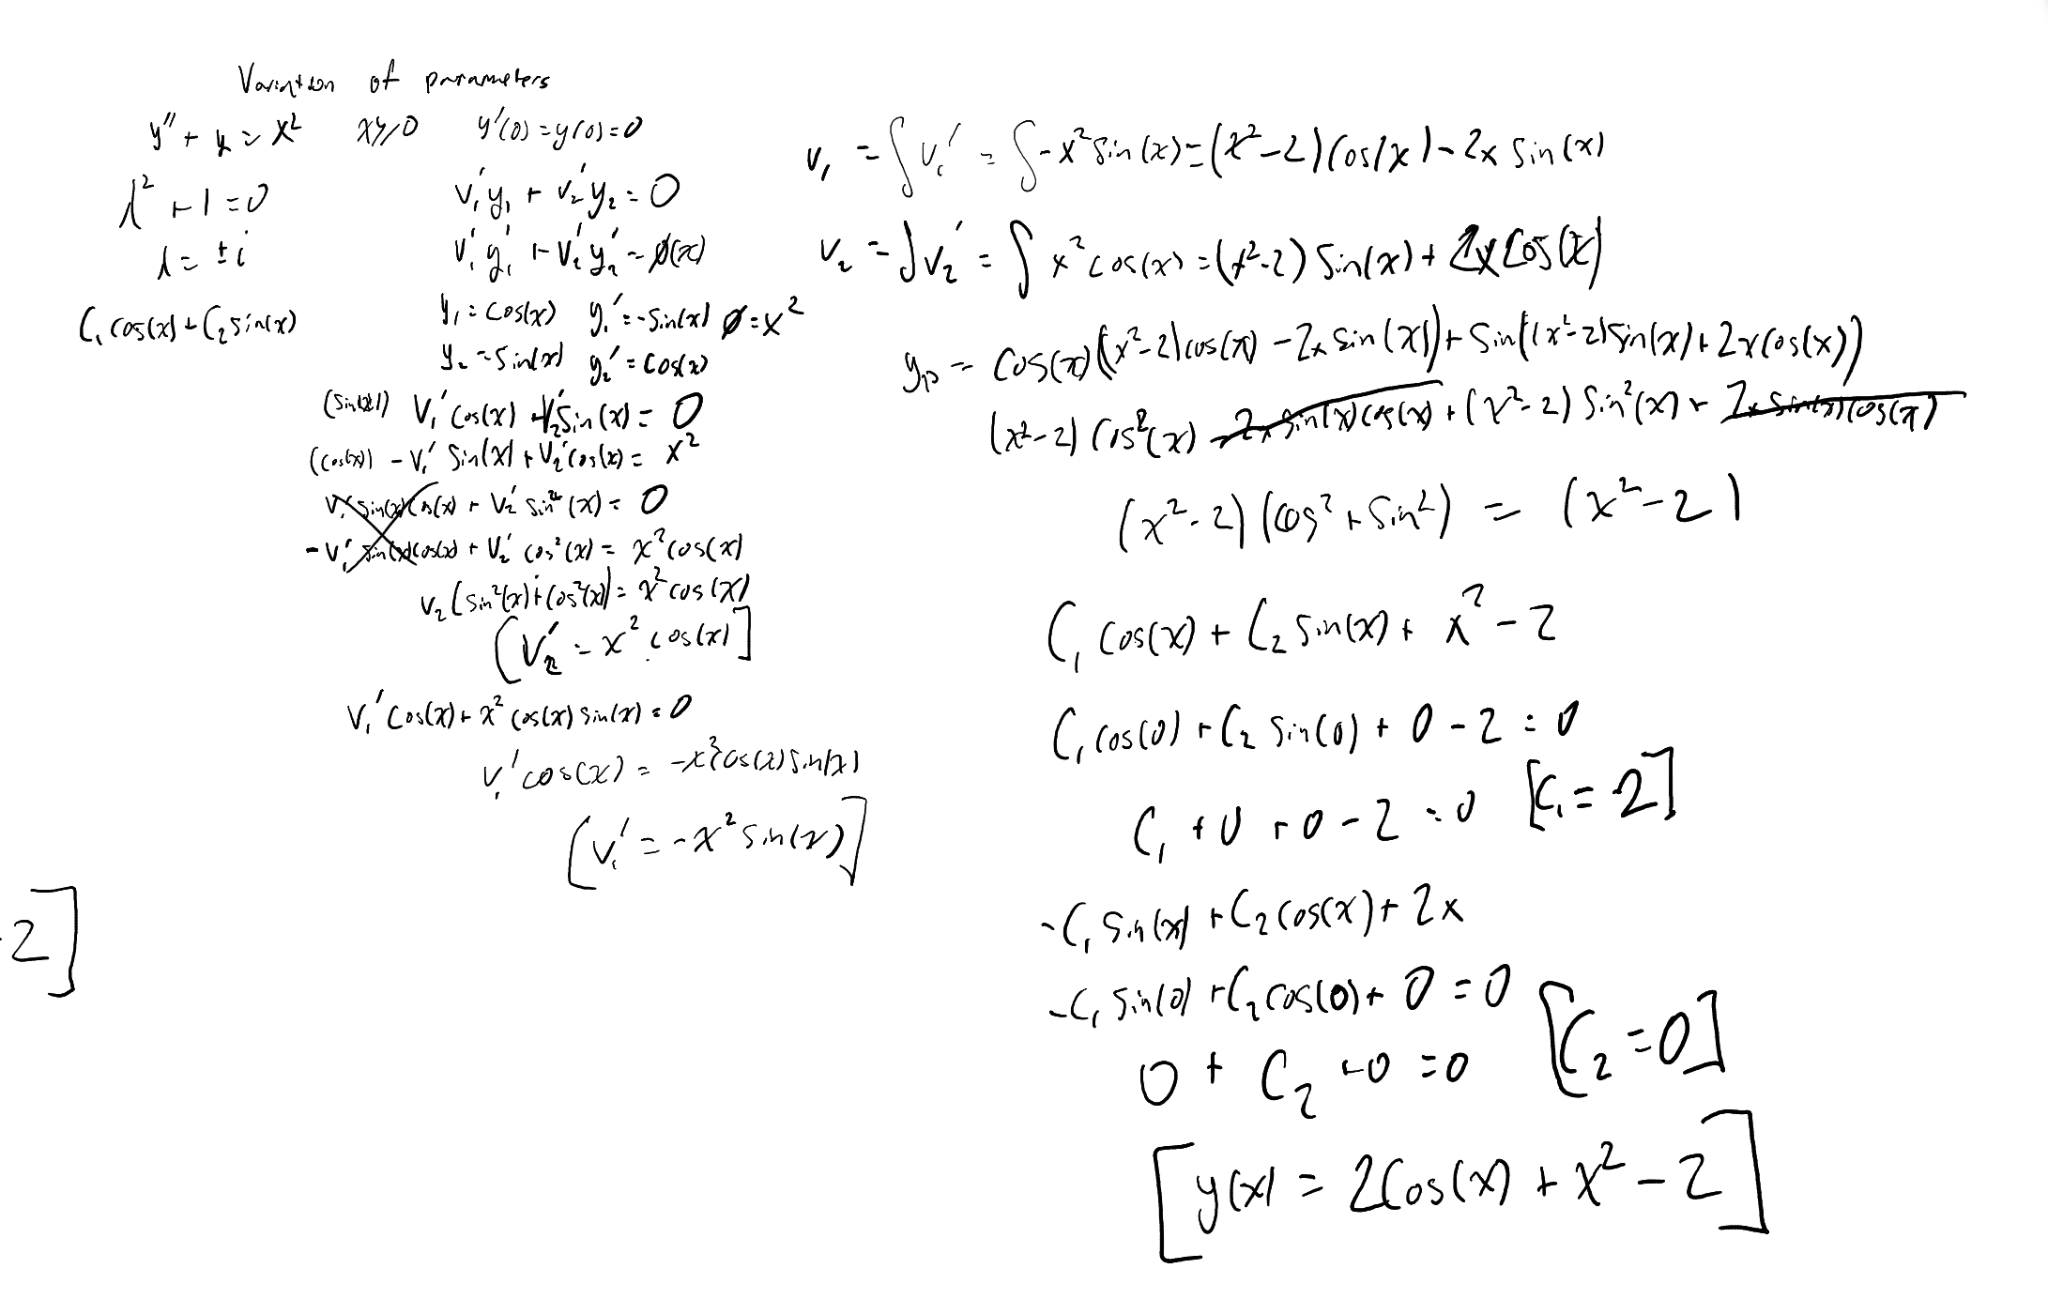 Variation of parameters
y'' + y = x² x≥0 y'(0) = y(0) = 0
λ² + 1 = 0
λ = ± i
C₁ cos(x) + C₂ sin(x)
v₁'y₁ + v₂'y₂ = 0
v₁'y₁' + v₂'y₂' = ϕ(x)
y₁ = cos(x) y₁' = -sin(x) ϕ = x²
y₂ = sin(x) y₂' = cos(x)
(sin(x)) v₁' cos(x) + v₂' sin(x) = 0
(cos(x)) - v₁' sin(x) + v₂' cos(x) = x²
v₁' sin(x) cos(x) + v₂' sin²(x) = 0
- v₁' sin(x) cos(x) + v₂' cos²(x) = x² cos(x)
v₂ (sin²(x) + cos²(x)) = x² cos(x)
[v₂' = x² cos(x)]
v₁' cos(x) + x² cos(x) sin(x) = 0
v₁' cos(x) = -x² cos(x) sin(x)
[v₁' = -x² sin(x)]
2]
v₁ = ∫v₁' = ∫-x² sin(x) = (x²-2) cos(x) - 2x sin(x)
v₂ = ∫v₂' = ∫x² cos(x) = (x²-2) sin(x) + 2x cos(x)
yp = cos(x)((x²-2) cos(x) - 2x sin(x)) + sin((x²-2) sin(x) + 2x cos(x))
(x²-2) cos²(x) - 2x sin(x) cos(x) + (x²-2) sin²(x) + 2x sin(x) cos(x)
(x²-2)(cos² + sin²) = (x²-2)
C₁ cos(x) + C₂ sin(x) + x² - 2
C₁ cos(0) + C₂ sin(0) + 0 - 2 = 0
C₁ + 0 + 0 - 2 = 0 [C₁ = 2]
-C₁ sin(x) + C₂ cos(x) + 2x
-C₁ sin(0) + C₂ cos(0) + 0 = 0
0 + C₂ + 0 = 0 [C₂ = 0]
[y(x) = 2cos(x) + x² - 2]